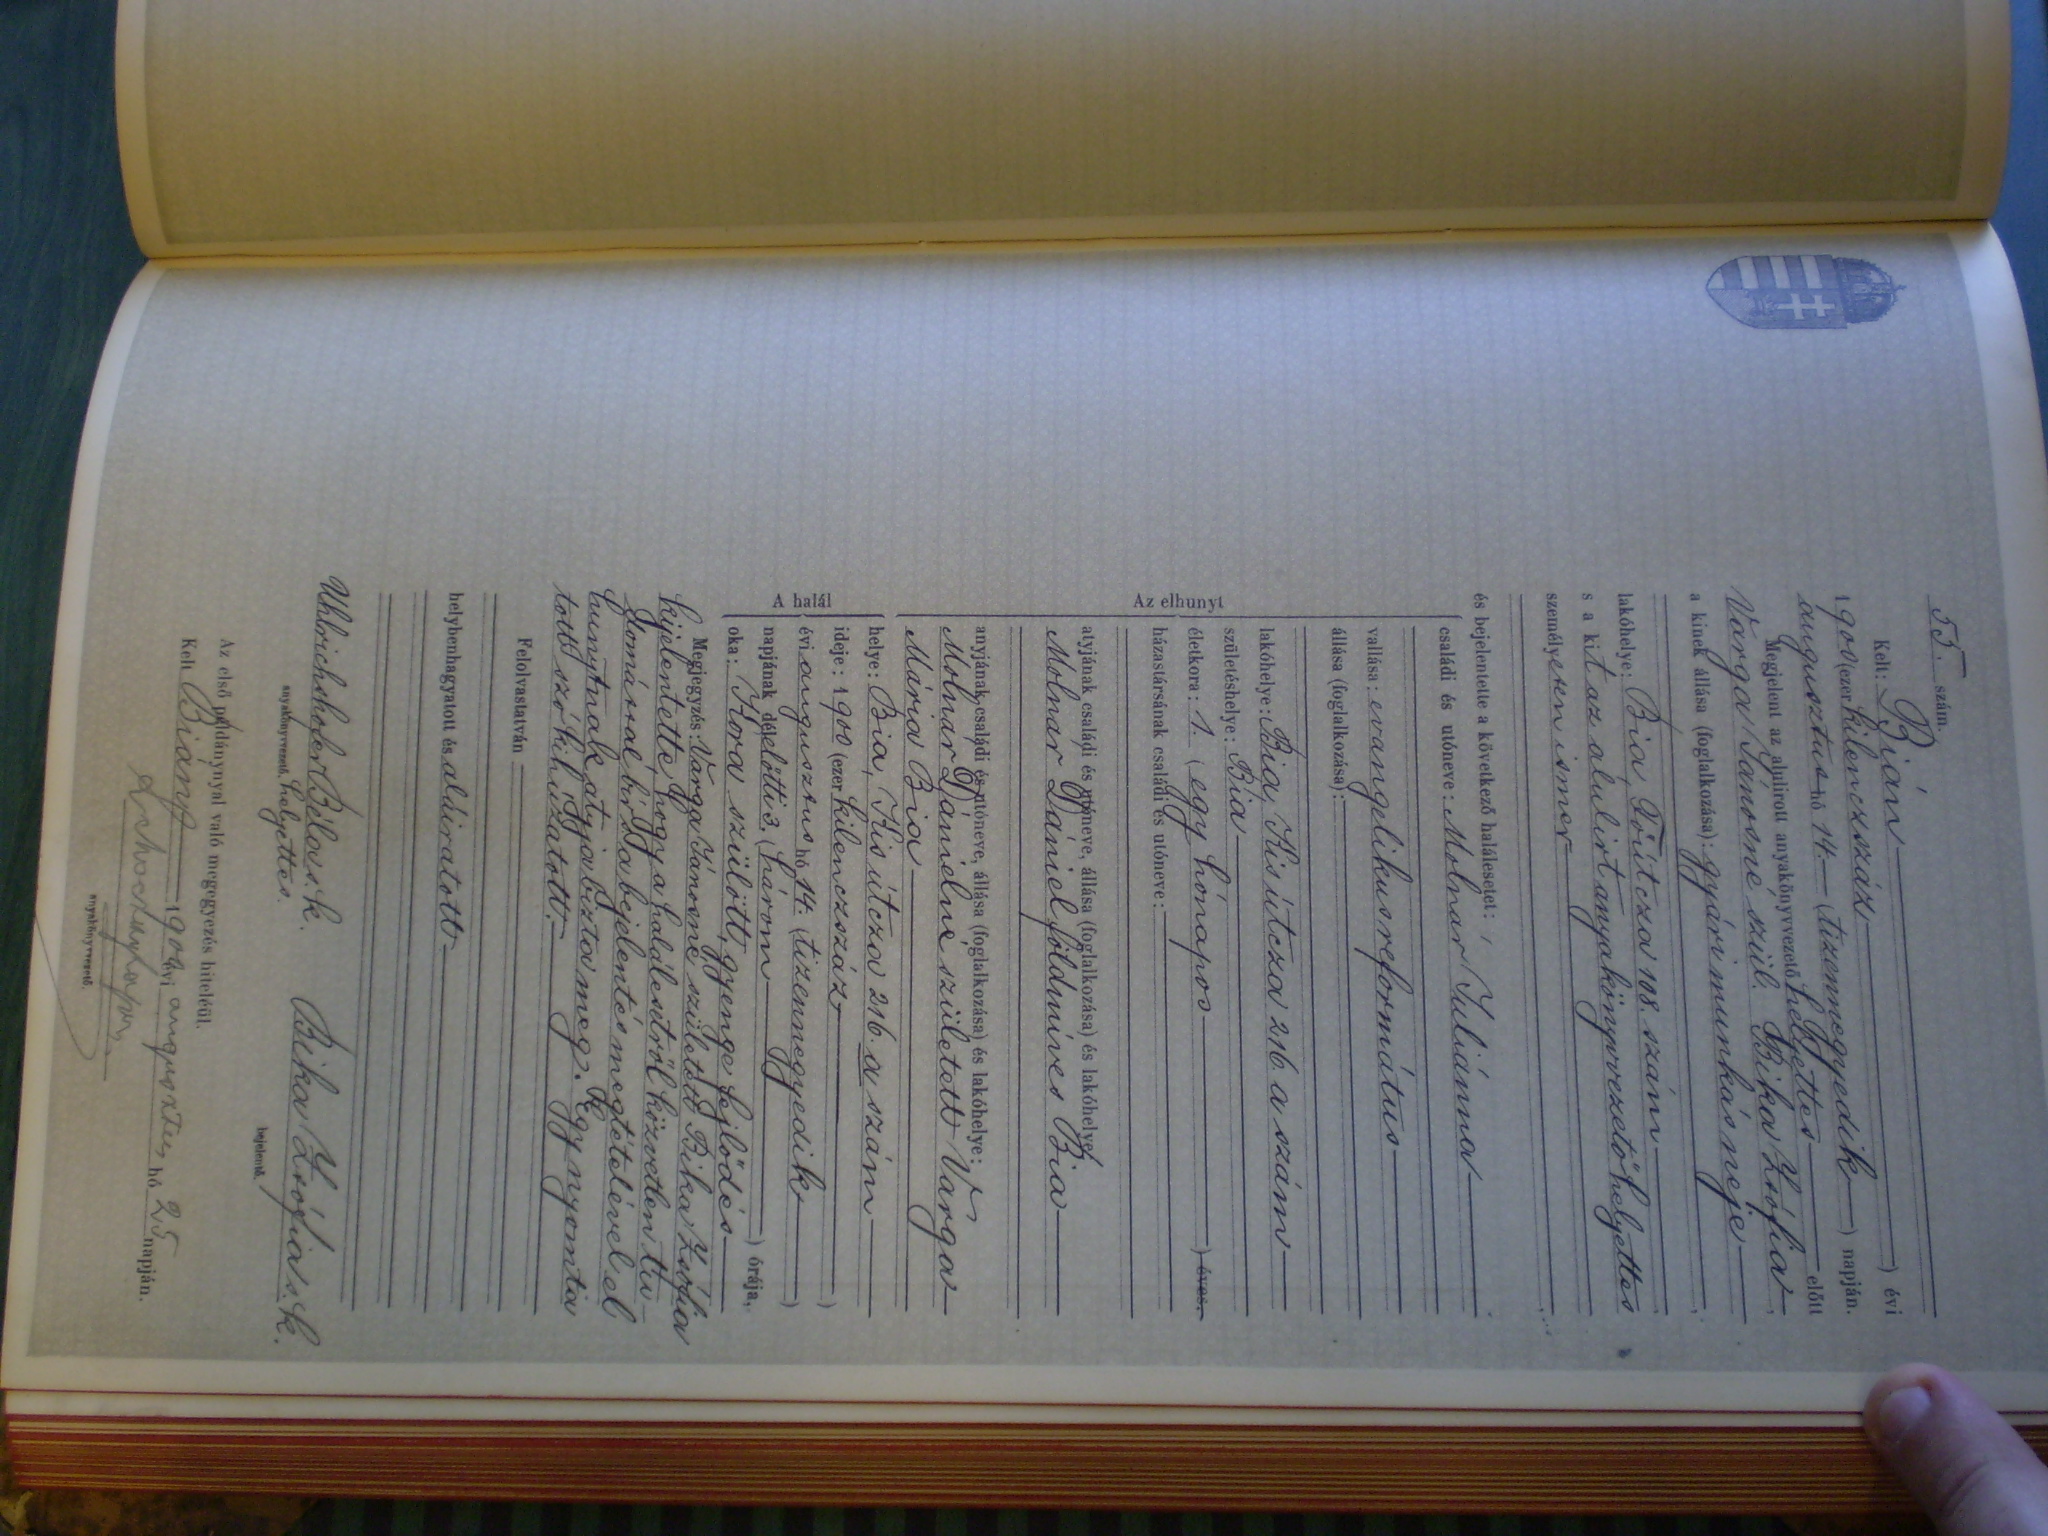 55. szám.
Kelt: Bián ) évi
1900 (ezer kilenczszáz
augusztus hó 14. (tizennegyedik ) napján.
Megjelent az alulirott anyakönyvvezető helyettes előtt
Varga Jánosné szül. Bika Zsófia
a kinek állása (foglalkozása): gyári munkás neje
lakóhelye: Bia, Főútcza 108. szám
s a kit az alulirt anyakönyvvezető helyettes
személyesen ismer
és bejelentette a következő halálesetet:
Az elhunyt
családi és utóneve: Molnar Juliánna
vallása: evangelikus református
állása (foglalkozása):
lakóhelye: Bia, Kis útcza 216. a szám
születéshelye: Bia
életkora: 1. (egy hónapos ) éves.
házastársának családi és utóneve:
atyjának családi és utóneve, állása (foglalkozása) és lakóhelye:
Molnar Dániel földmíves Bia
anyjának családi és utóneve, állása (foglalkozása) és lakóhelye:
Molnar Dánielné született Varga
Mária Bia
A halál
helye: Bia, Kis útcza 216. a szám
ideje: 1900 (ezer kilenczszáz )
évi augusztus hó 14. (tizennegyedik )
napjának délelőtti 3. (három ) órája,
oka: Kora szülött, gyenge fejlődés
Megjegyzés: Varga Jánosné született Bika Zsófia
kijelentette, hogy a halálesetről közvetlen tu
domással bír s a bejelentés megtételével el
hunytnak atyja bízta meg. Egy nyomta
tott szó kihúzatott.
Felolvastatván
helybenhagyatott és aláiratott
Uhlrichshofer Béla s. k.
anyakönyvvezető. helyettes.
Bika Zsófia s. k.
bejelentő.
Az első példánynyal való megegyezés hiteléül.
Kelt Bián, 1900 évi augusztus hó 25 napján.
anyakönyvvezető.